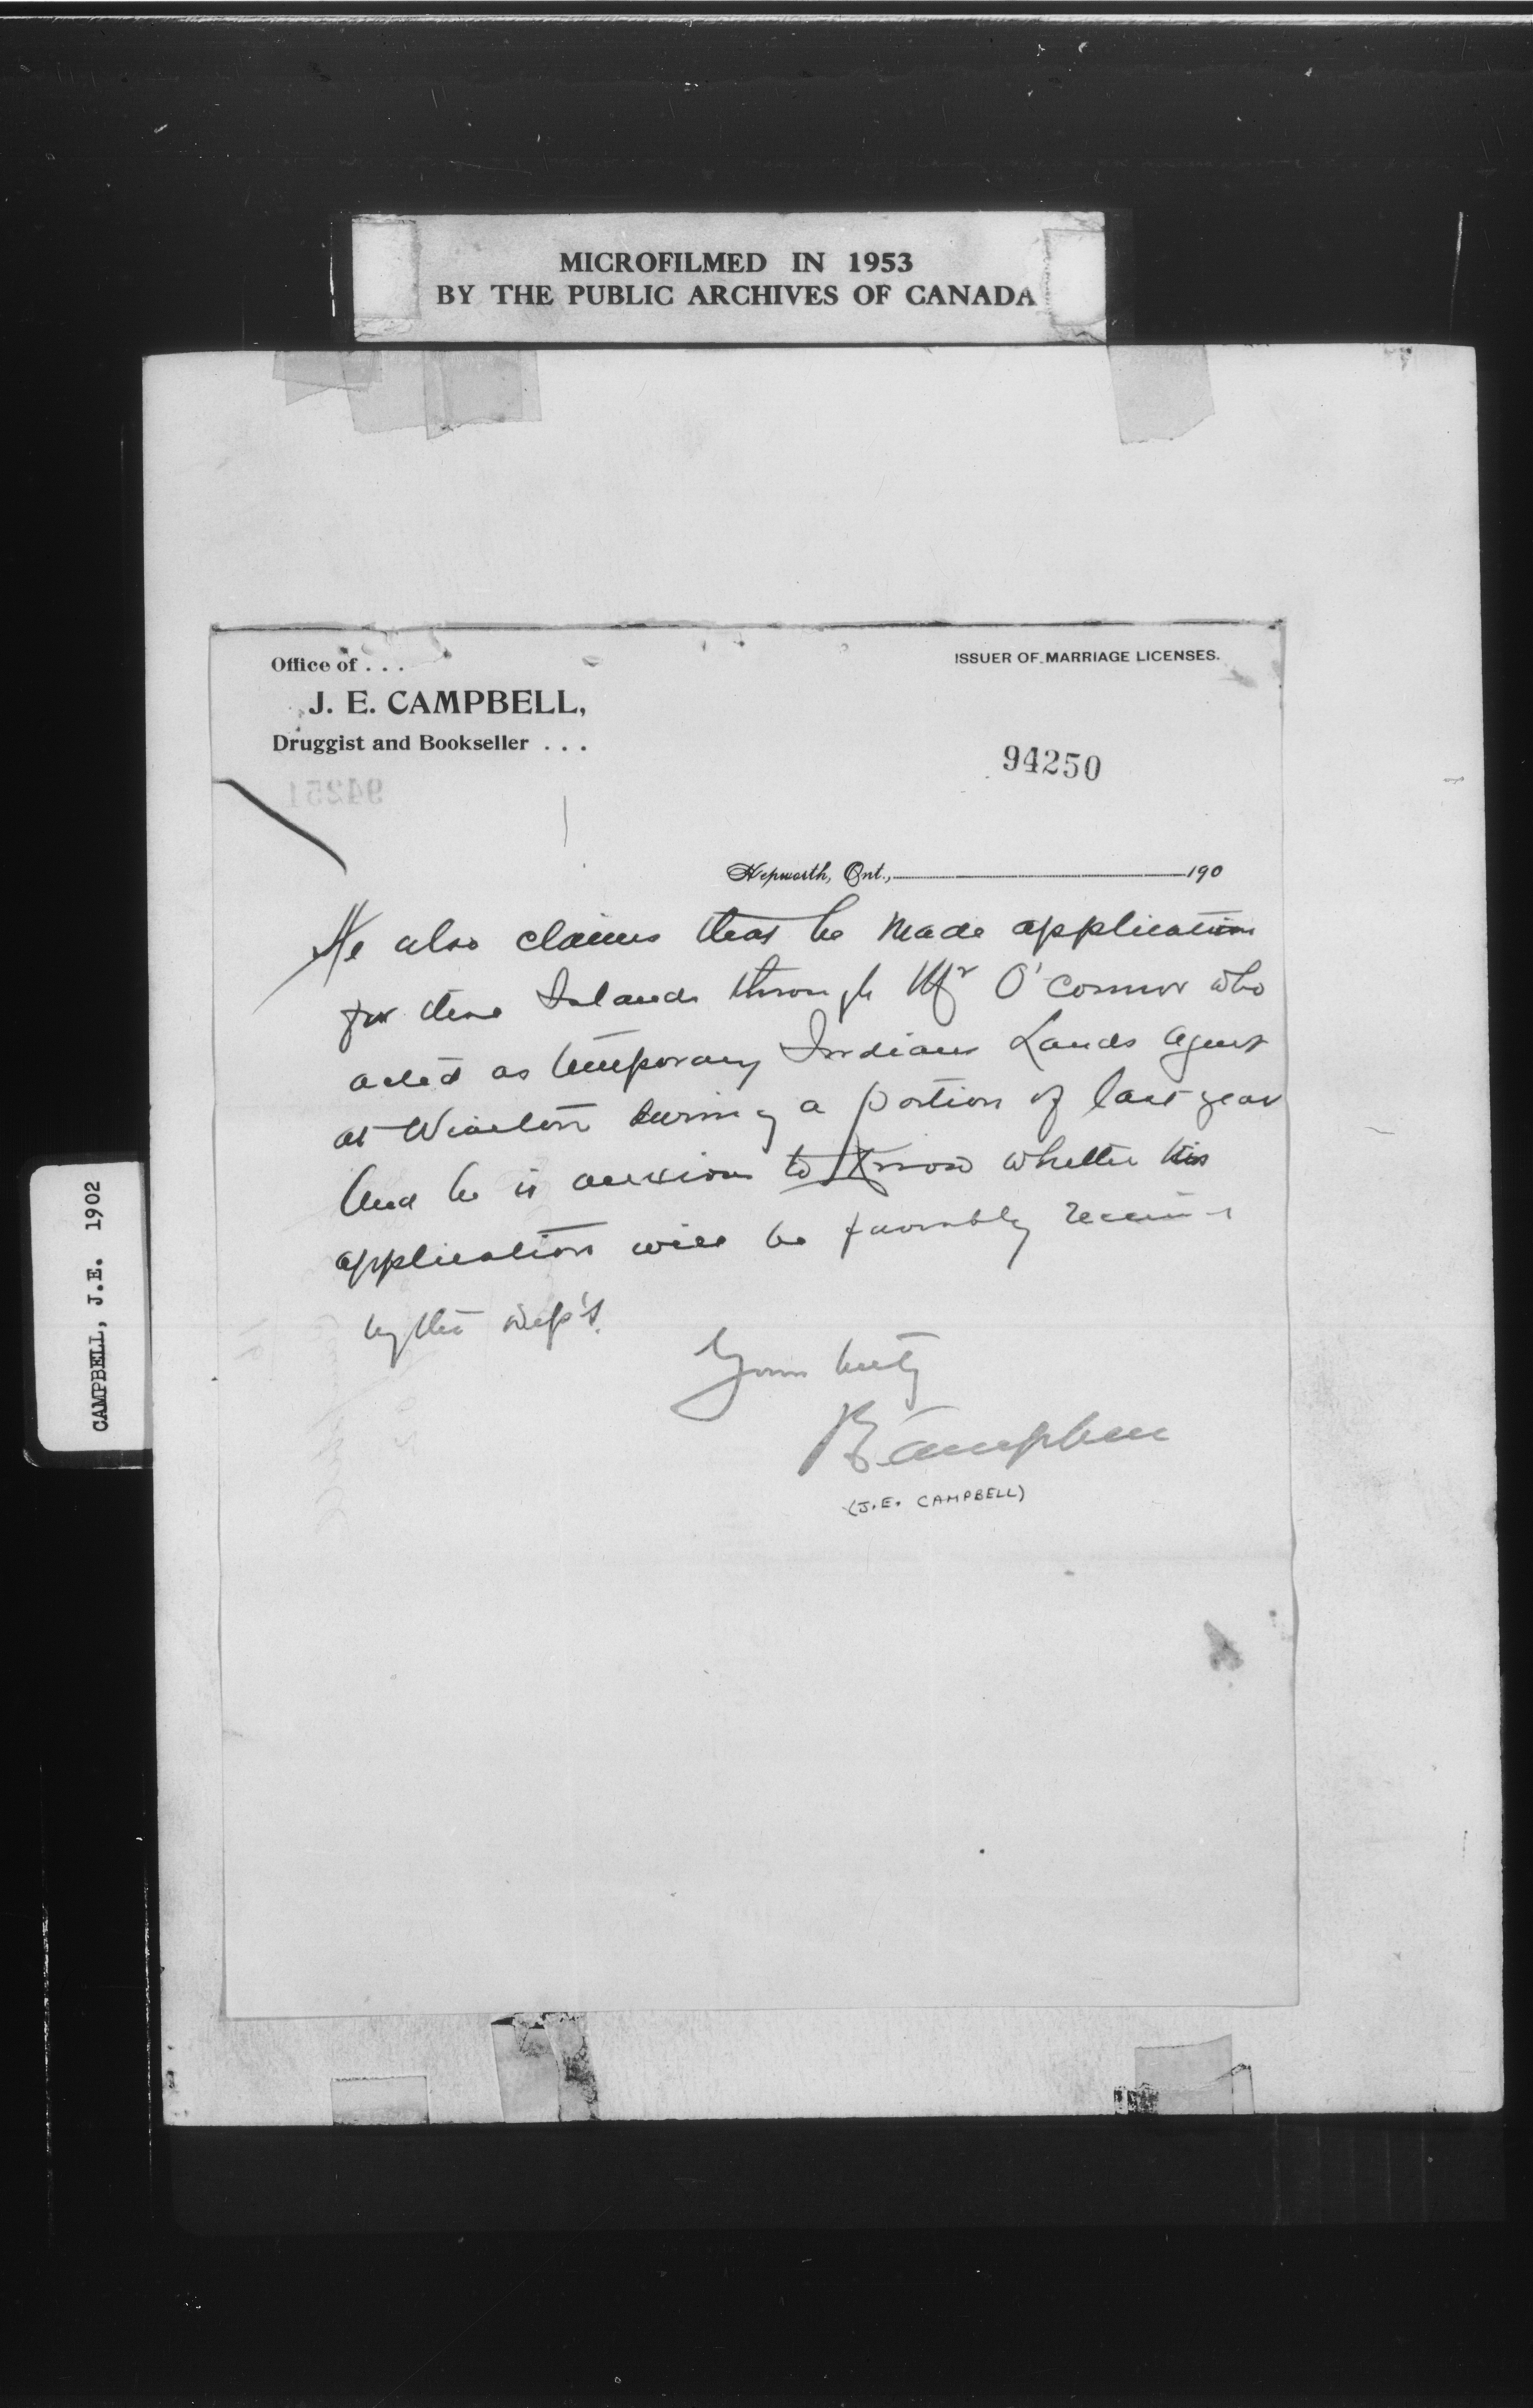 MICROFILMED IN 1953
BY THE PUBLIC ARCHIVES OF CANADA
CAMPBELL, J.E. 1902
Office of . . .
ISSUER OF MARRIAGE LICENSES.
J. E. CAMPBELL,
Druggist and Bookseller . . .
94250
94251
Hepworth, Ont., 190
He also claims that he made application
for these Islands through Mr O'Connor who
acted as temporary Indian Lands Agent
at Wiarton during a portion of last year
and he is anxious to know whether his
application will be favorably
by the Dep't.
Yours truly
Campbell
(J.E. CAMPBELL)